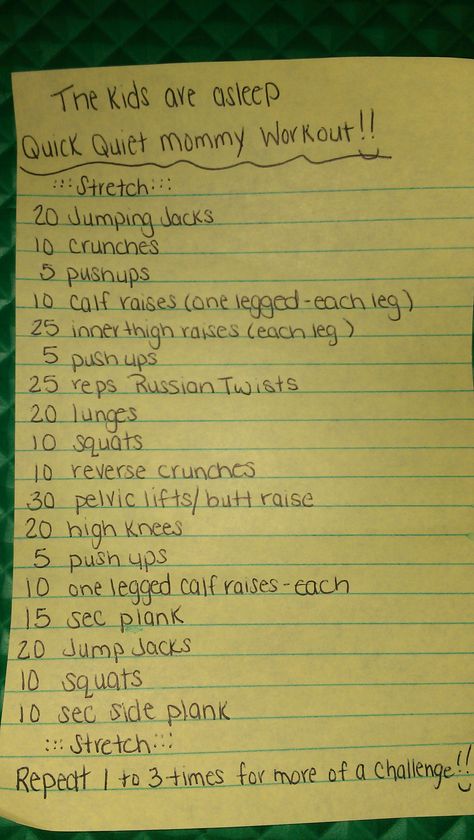 The Kids are asleep
Quick Quiet Mommy Workout!!
:::Stretch:::
20 Jumping Jacks
10 crunches
5 pushups
10 calf raises (one legged-each leg)
25 inner thigh raises (each leg)
5 push ups
25 reps Russian Twists
20 lunges
10 squats
10 reverse crunches
30 pelvic lifts/butt raise
20 high knees
5 push ups
10 one legged calf raises-each
15 sec plank
20 Jump Jacks
10 squats
10 sec side plank
:::Stretch:::
Repeat 1 to 3 times for more of a challenge!!